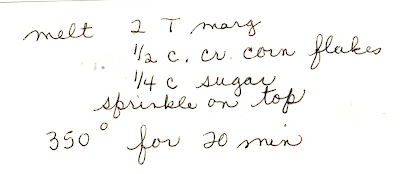 melt 2 T marg
1/2 c. cr. corn flakes
1/4 c sugar
sprinkle on top
350° for 20 min